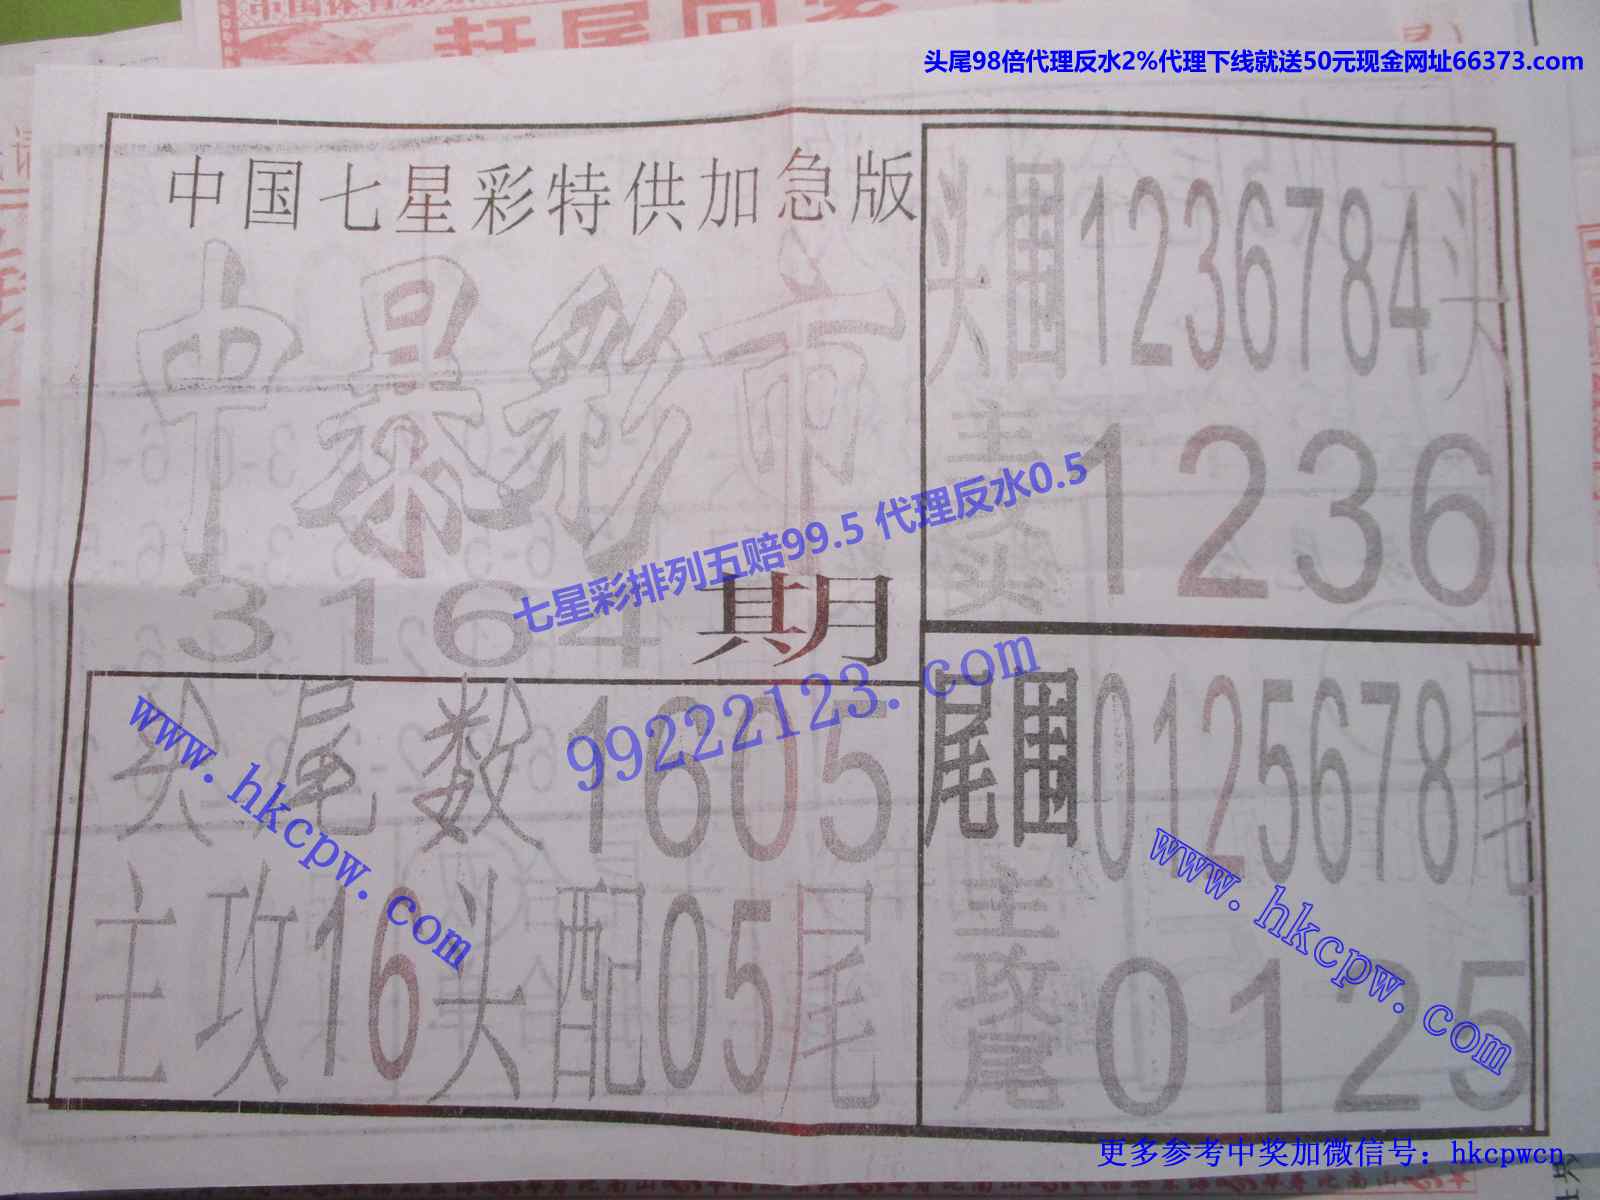 头尾98倍代理反水2%代理下线就送50元现金网址66373.com
中国七星彩特供加急版
中暴彩市
3164期
七星彩排列五赔99.5 代理反水0.5
99222123.com
头围1236784头
主攻头1236
头尾数1605
主攻16头配05尾
www.hkcpw.com
尾围0125678尾
主攻尾0125
www.hkcpw.com
更多参考中奖加微信号：hkcpwcn